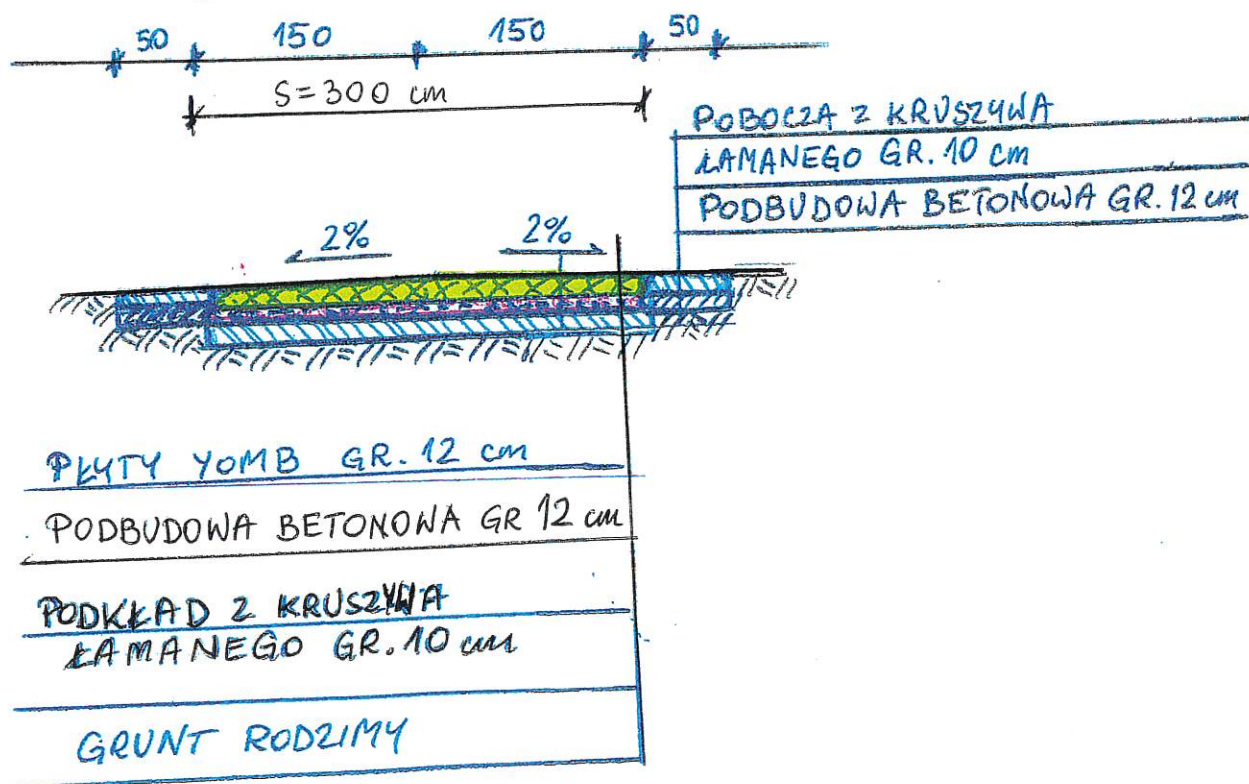 50 150 150 50
S=300 cm
POBOCZA Z KRUSZYWA
ŁAMANEGO GR. 10 cm
PODBUDOWA BETONOWA GR. 12 cm
2% 2%
PŁYTY YOMB GR. 12 cm
PODBUDOWA BETONOWA GR 12 cm
PODKŁAD Z KRUSZYWA
ŁAMANEGO GR. 10 cm
GRUNT RODZIMY